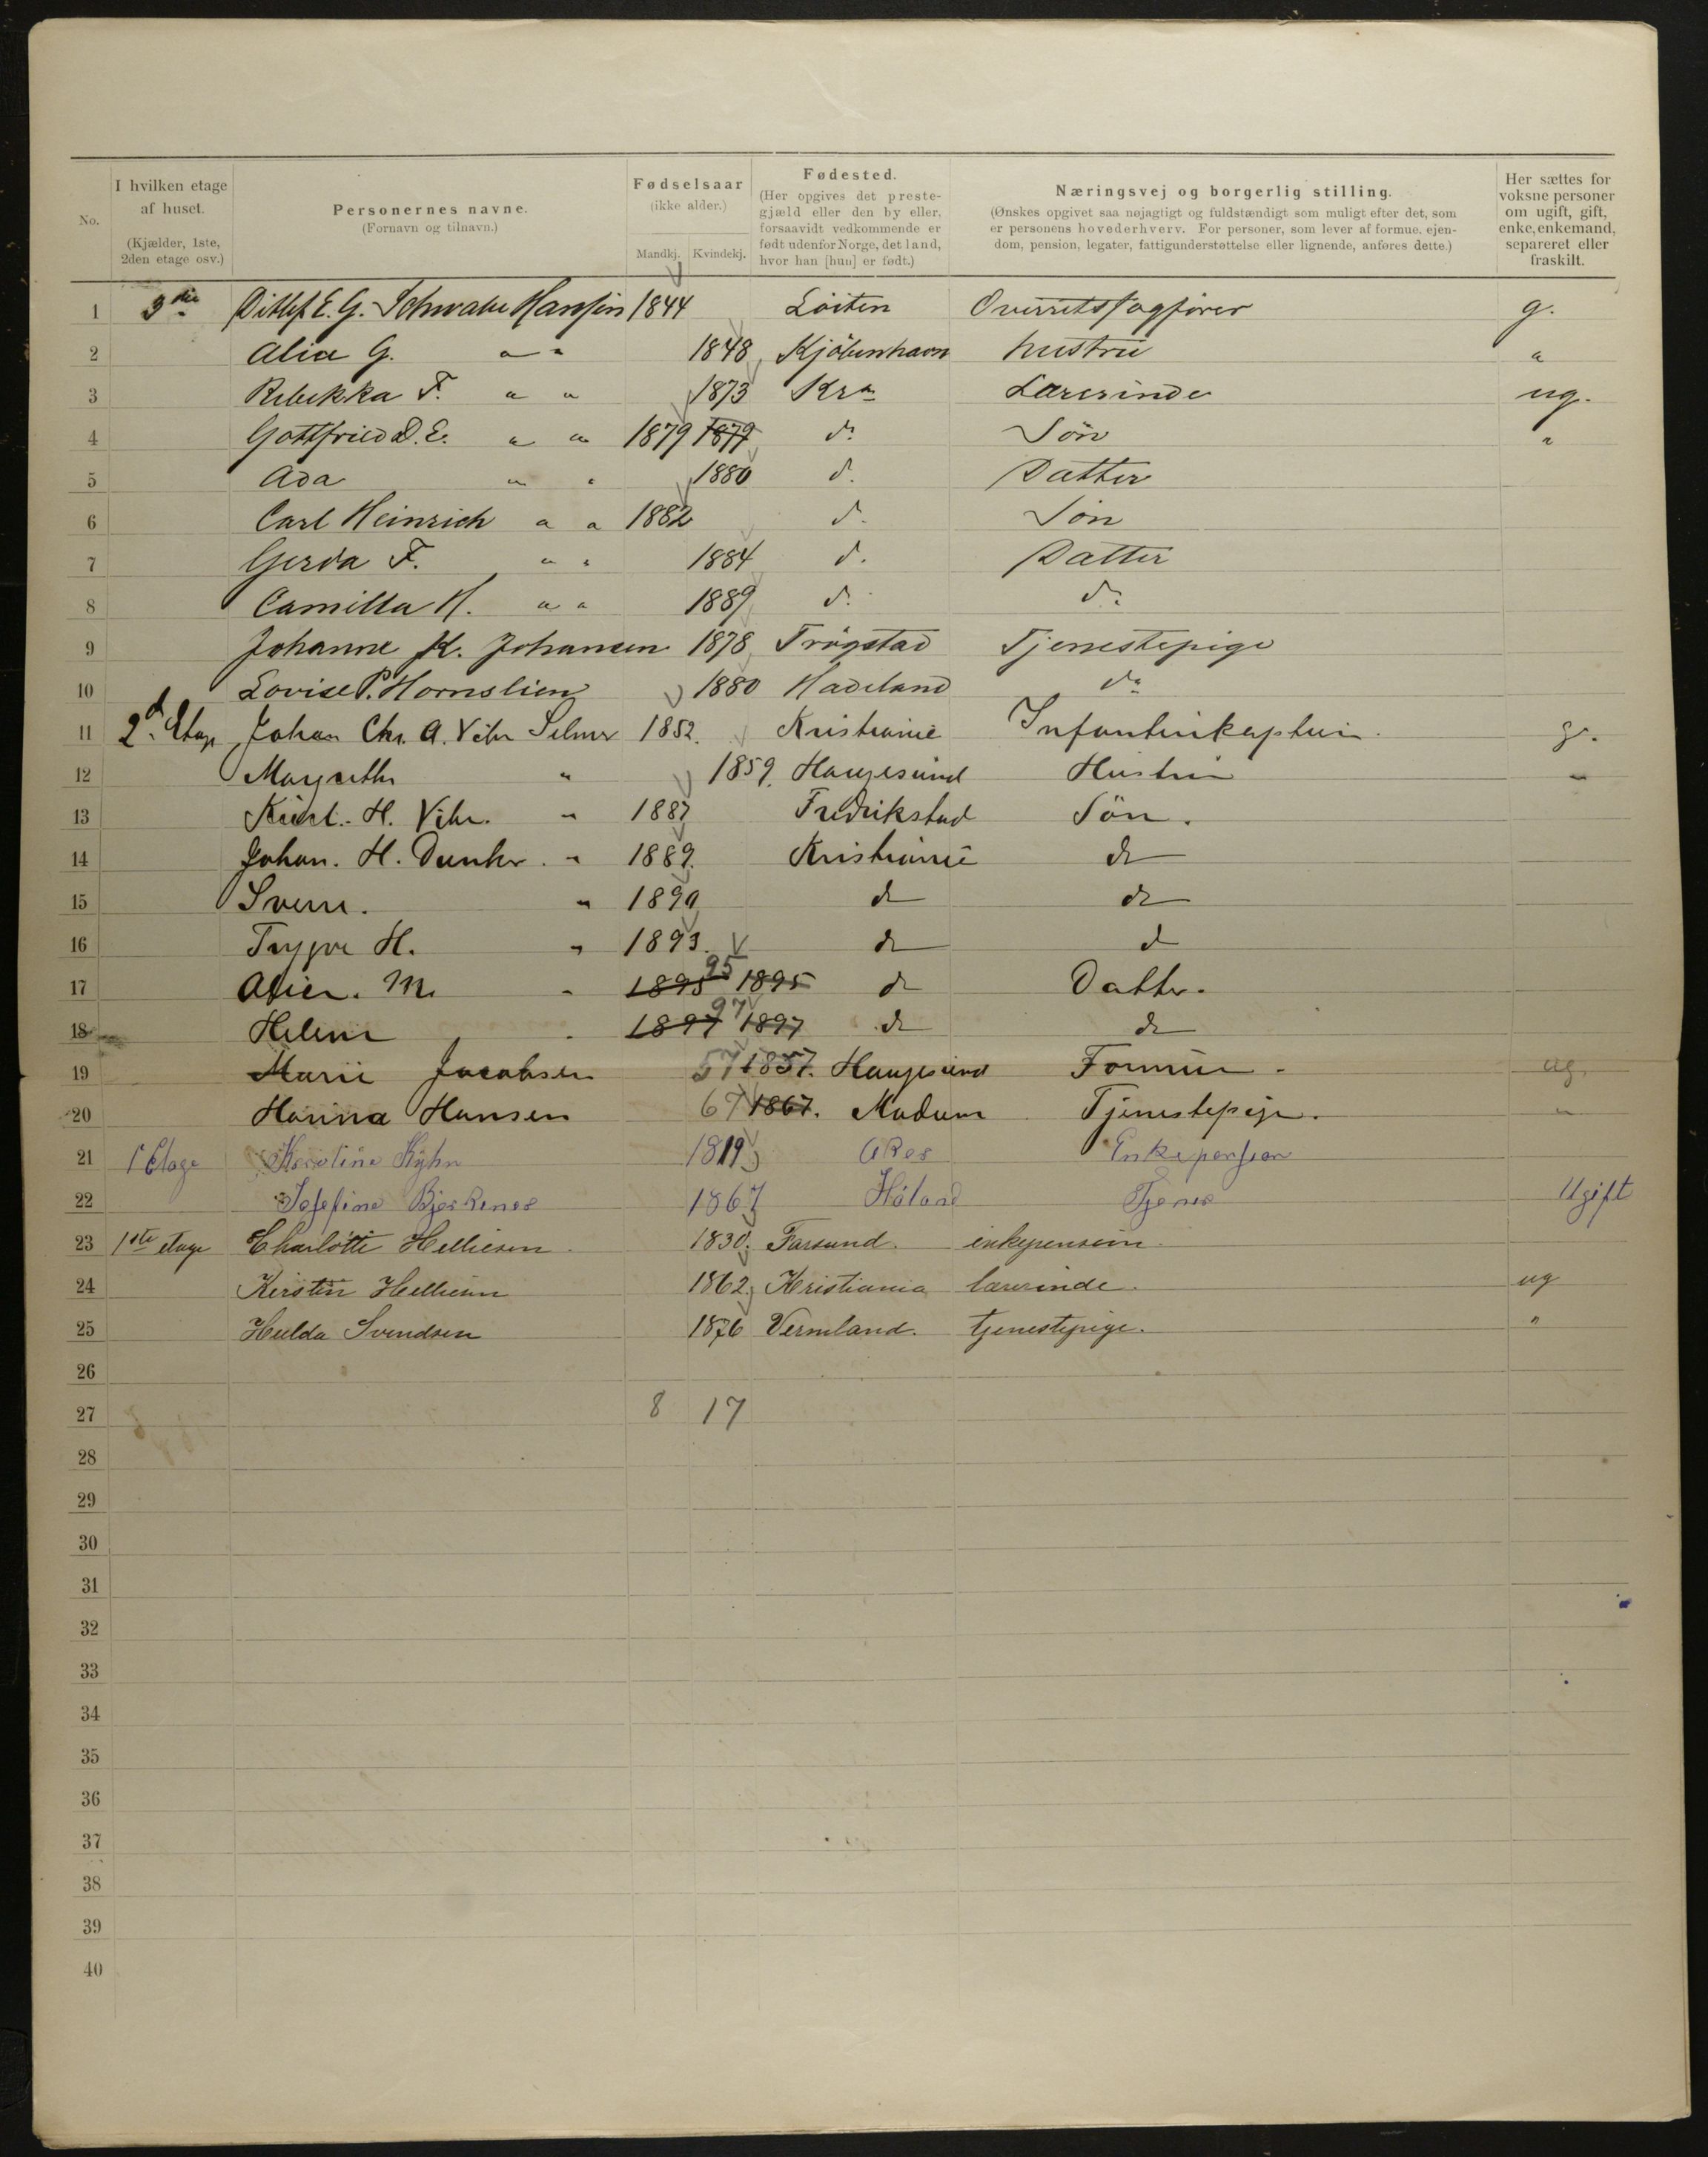 No.
I hvilken etage af huset. (Kjælder, 1ste, 2den etage osv.)
Personernes navne. (Fornavn og tilnavn.)
Fødselsaar (ikke alder.) Mandkj. Kvindekj.
Fødested. (Her opgives det prestegjæld eller den by eller, forsaavidt vedkommende er født udenfor Norge, det land, hvor han [hun] er født.)
Næringsvej og borgerlig stilling. (Ønskes opgivet saa nøjagtigt og fuldstændigt som muligt efter det, som er personens hovederhverv. For personer, som lever af formue, ejendom, pension, legater, fattigunderstøttelse eller lignende, anføres dette.)
Her sættes for voksne personer om ugift, gift, enke, enkemand, separeret eller fraskilt.
1 3die Ditlef E. G. Schwabe Hanssen 1844 Löiten Overretssagfører g.
2 Alia G. " " 1848 Kjöbenhavn hustru "
3 Rebekka F. " " 1873 Kra Lærerinde ug.
4 Gottfried D. E. " " 1879 1879 do Sön "
5 Ada " " 1880 d. Datter
6 Carl Heinrich " " 1882 d. Sön
7 Gerda F. " " 1884 d. Datter
8 Camilla H. " " 1889 d. do
9 Johanne K. Johansen 1878 Trögstad Tjenestepige
10 Lovise P. Hornslien 1880 Hadeland do
11 2d Etage Johan Chr. A. Vibe Selmer 1852. Kristiania Infanterikaptein. g.
12 Margrethe " 1859. Haugesund Hustru "
13 Kristi. H. Vibe. " 1887 Fredrikstad Sön.
14 Johan. H. Dunker. " 1889. Kristiania do
15 Sverre. " 1890 do do
16 Trygve H. " 1893. do d
17 M. " 1895 95 1895 do Datter.
18 Helene " 1897 97 1897 do do
19 Marie Jacobsen 57 1857. Haugesund Formue. ug.
20 Hanna Hansen 67 1867. Modum Tjenestepige. "
21 1 Etage Karoline Kyhn 1819 Aker Enkepension
22 Josefine Bjerkenes 1867 Höland Tjener Ugift
23 1ste etage Charlotte Helliesen. 1830. Farsund. enkepension.
24 Kirsten Helliesen 1862. Kristiania lærerinde. ug
25 Hulda Svendsen 1876 Vermland. tjenestepige. "
26
27 8 17
28
29
30
31
32
33
34
35
36
37
38
39
40